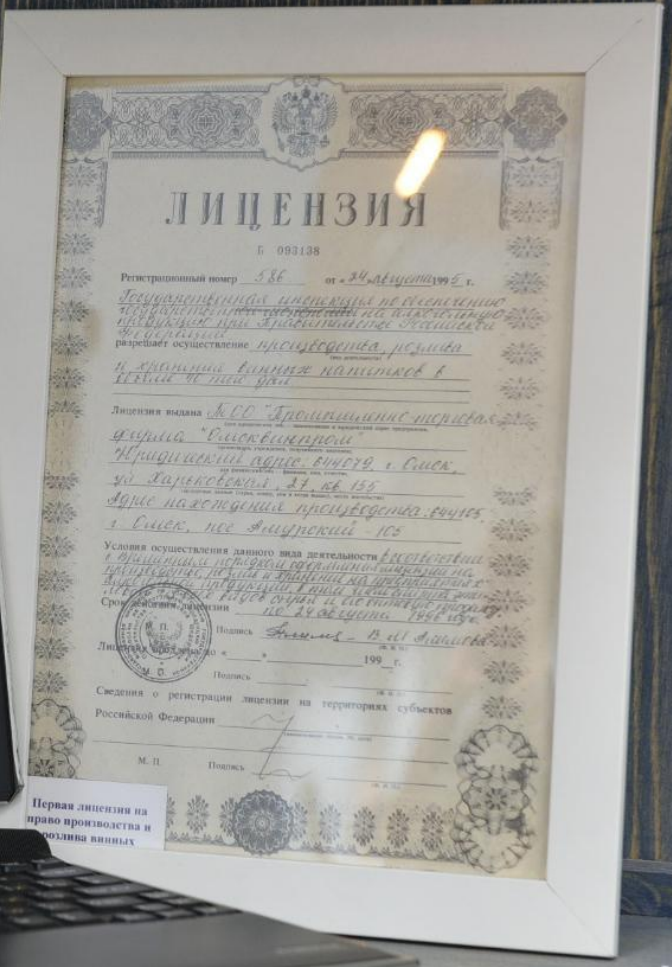 ЛИЦЕНЗИЯ
Б 093138
Регистрационный номер 586 от « 24 августа 1995 г.
Государственная инспекция по обеспечению
государственной на алкогольную
продукцию при Правительстве Российской
Федерации
разрешает осуществление производства, розлива
и хранения винных напитков в
объеме 70 тыс дал
Лицензия выдана ТОО "Промышленно-торговая
фирма "Омсквинпром"
Юридический адрес: 644079, г. Омск,
ул Харьковская, 27, кв 155
Адрес нахождения производства: 644105,
г. Омск, пос Амурский - 103
Условия осуществления данного вида деятельности в соответствии
с Временным порядком оформления лицензии на
производство, розлив и хранение на предприятиях
Срок действия лицензии по 24 августа 1996 года.
Подпись
Лицензия продлена до « » 199 г.
Подпись
Сведения о регистрации лицензии на территориях субъектов
Российской Федерации
М. П. Подпись
Первая лицензия на
право производства и
розлива винных